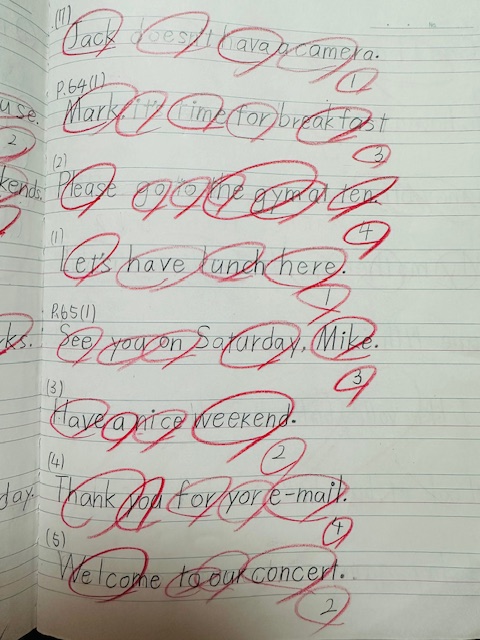 (11)
Jack doesn't hava a camera.
①
P.64(1)
Mark, it's time for breakfast
③
(2)
Please go to the gym at ten.
④
(1)
Let's have lunch here.
①
P.65(1)
See you on Saturday, Mike.
③
(3)
Have a nice weekend.
②
(4)
Thank you for yor e-mail.
④
(5)
Welcome to our concert.
②